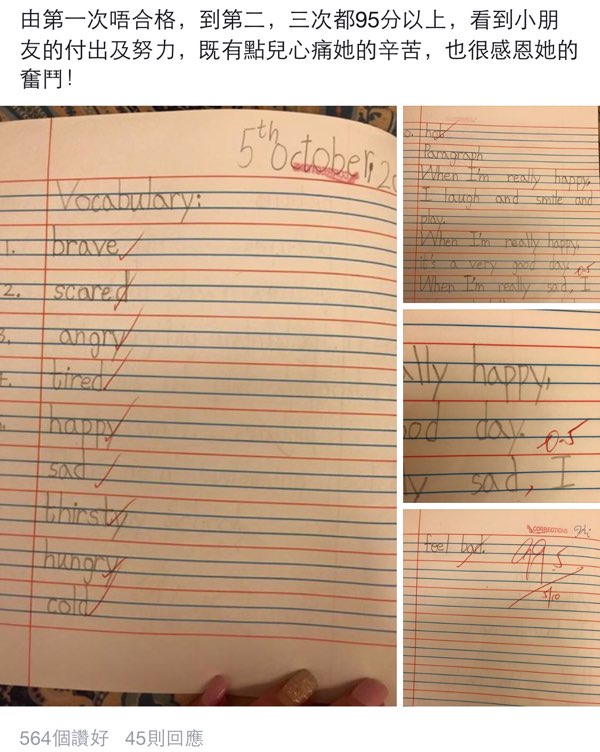 由第一次唔合格，到第二，三次都95分以上，看到小朋
友的付出及努力，既有點兒心痛她的辛苦，也很感恩她的
奮鬥！
5th October, 20
Vocabulary:
1. brave
2. scared
3. angry
4. tired
happy
sad
thirsty
hungry
cold
Paragraph
When I'm really happy,
I laugh and smile and
play.
When I'm really happy,
it's a very good day. 0.5
When I'm really sad, I
lly happy,
od day. 0.5
y sad, I
CORRECTIONS
feel bad.
99.5
5/10
564個讚好 45則回應